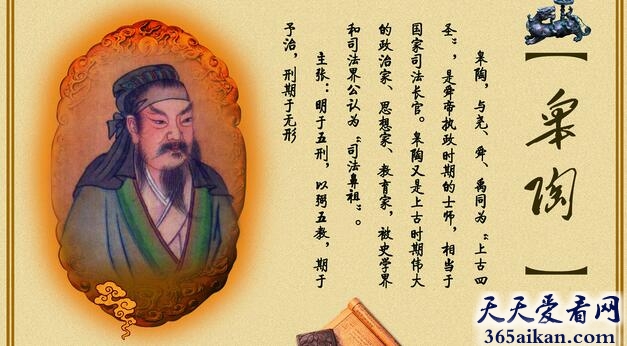 【皋陶】
皋陶，与尧、舜、禹同为“上古四
圣”，是舜帝执政时期的士师，相当于
国家司法长官。皋陶又是上古时期伟大
的政治家、思想家、教育家，被史学界
和司法界公认为“司法鼻祖”。
主张：明于五刑，以弼五教，期于
予治，刑期于无形
天天爱看网
365aikan.com